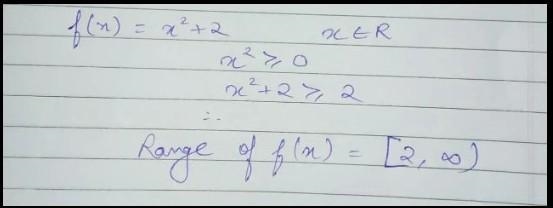 f(x) = x²+2 x∈R
x² ⩾ 0
x²+2 ⩾ 2
∴
Range of f(x) = [2, ∞)